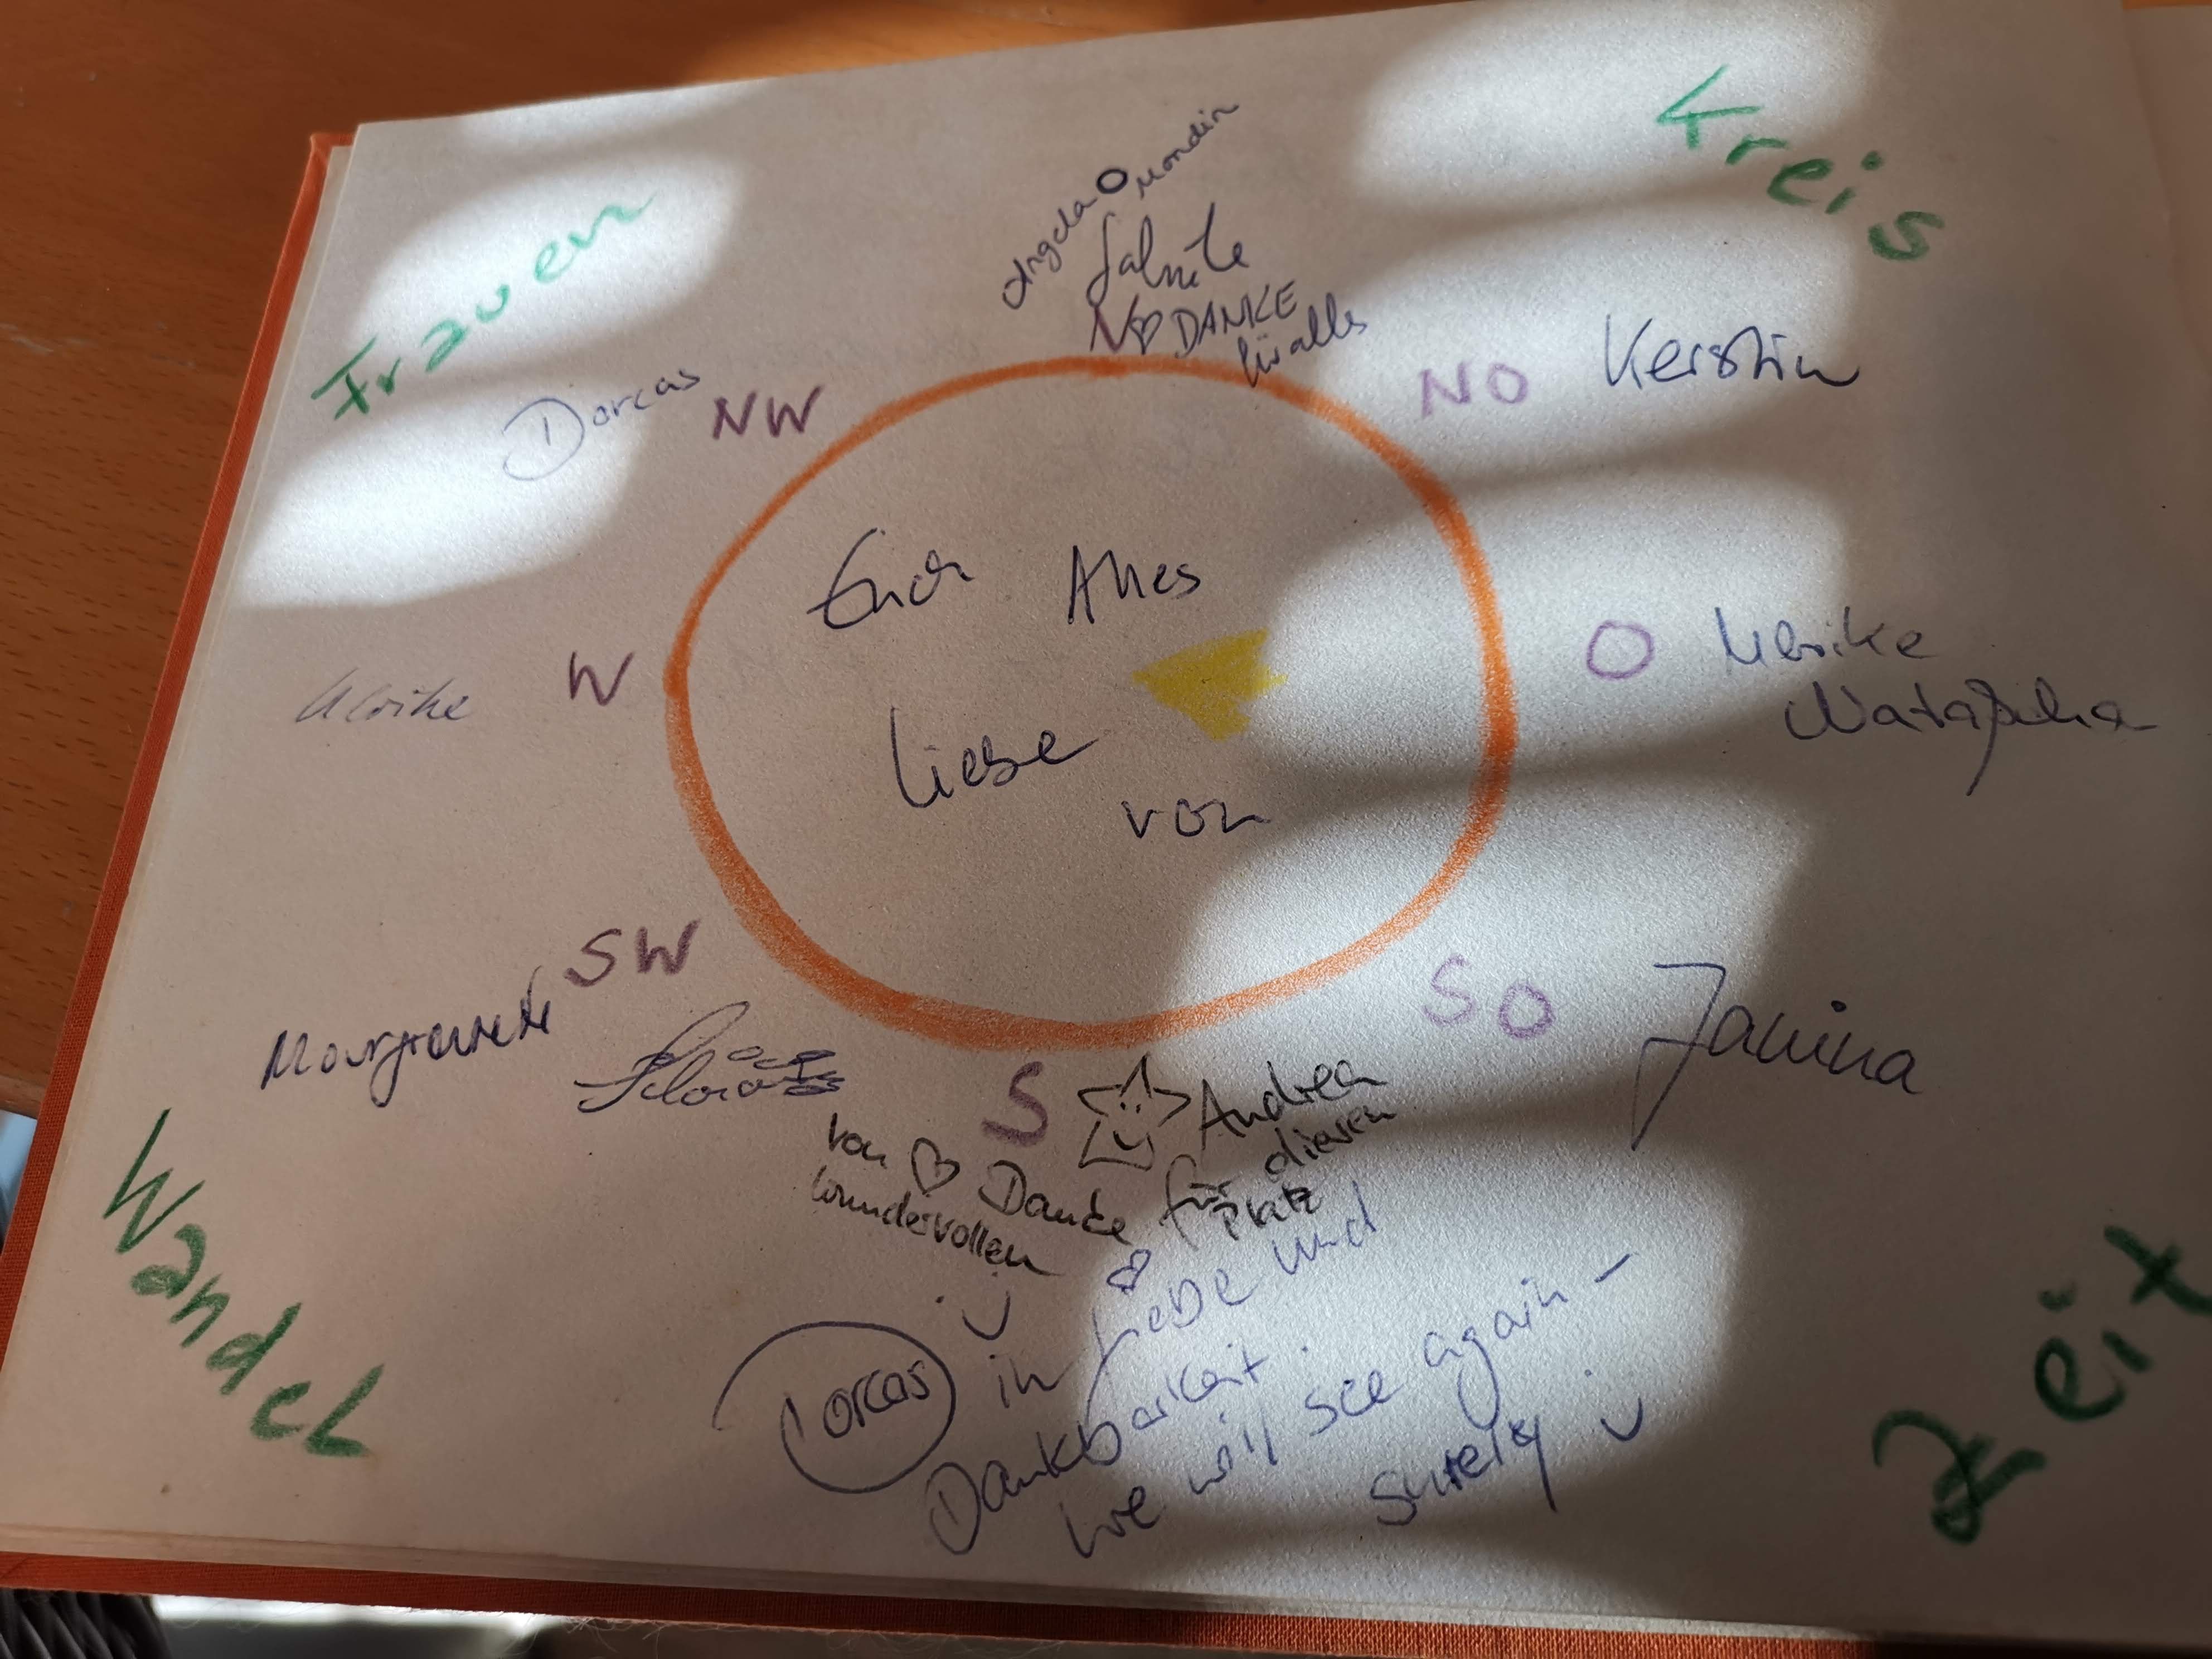 Frauen
Kreis
Angela Mondin
DANKE
für alles
N
NW
Dorcas
NO
Kerstin
Euch Alles
Liebe
von
W
Ulrike
O
Ulrike
Natascha
SW
Margarete
SO
Janina
S
Andrea
von Danke für diesen
wundervollen Platz
Dorcas in Liebe und
Dankbarkeit.
We will see again -
surely
Wandel
Zeit